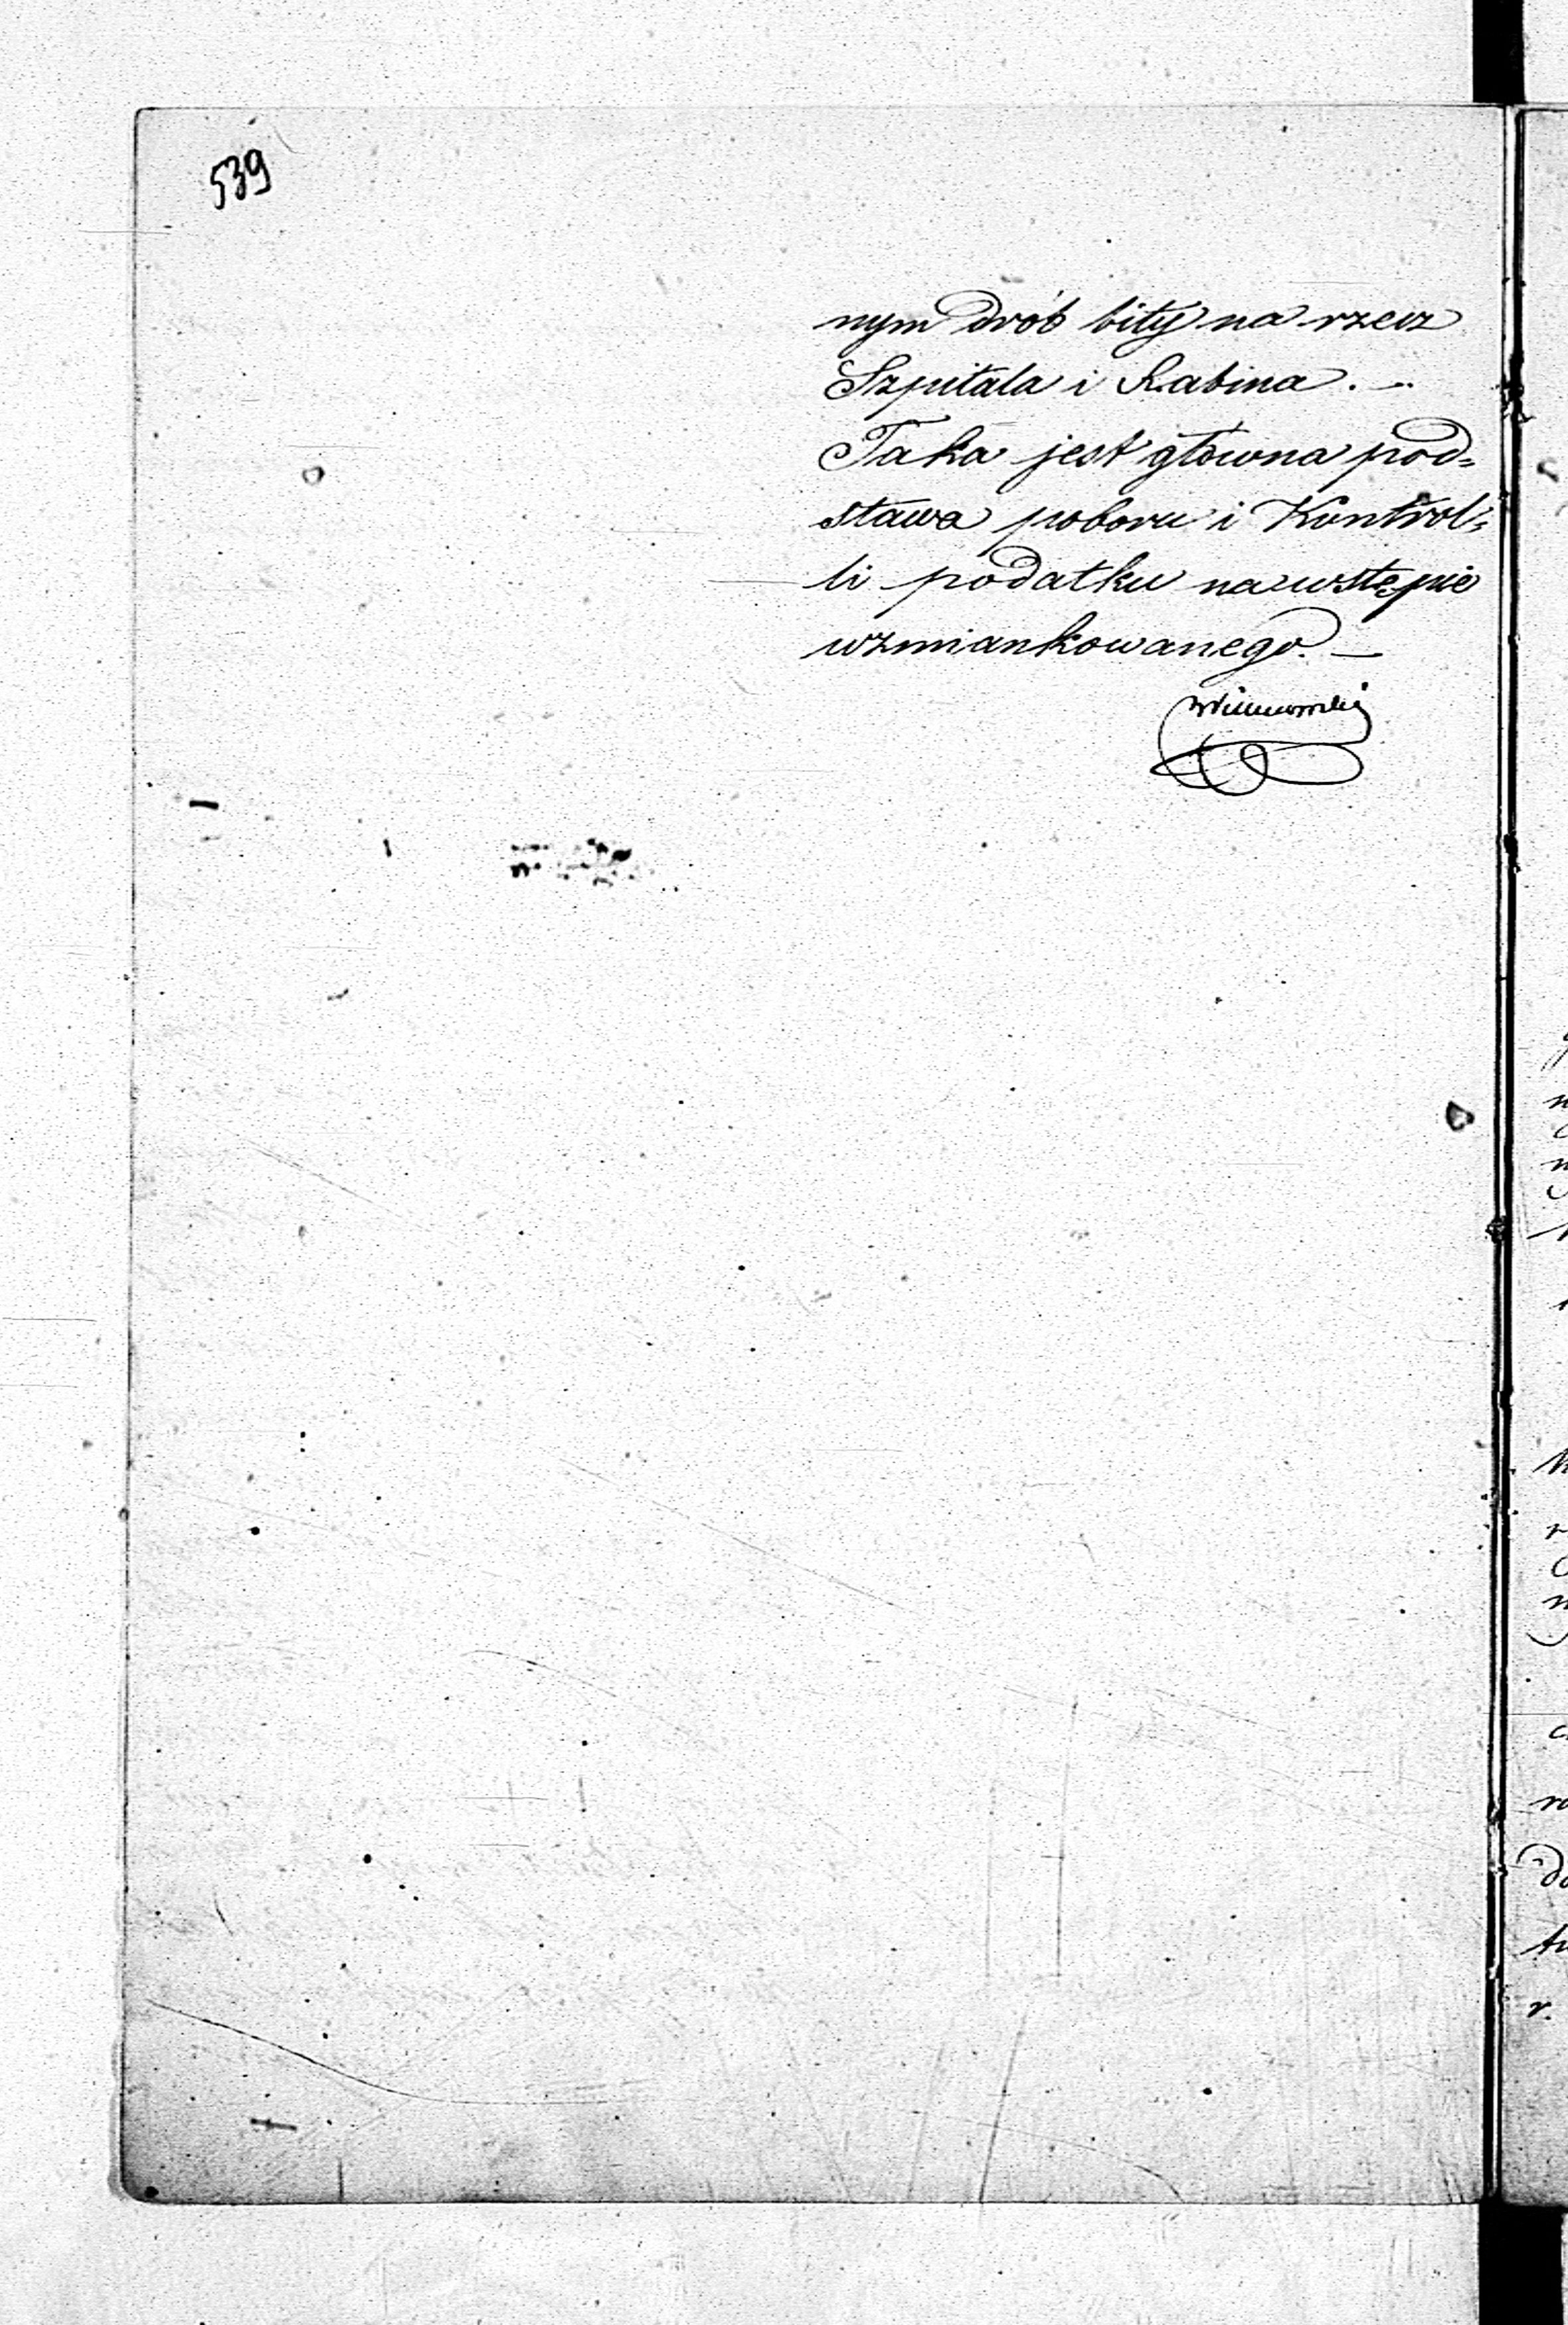 539
nym drób bity na rzecz
Szpitala i Rabina. —
Taka jest główna pod=
stawa poboru i Kontrol=
li podatku na wstępie
wzmiankowanego. —